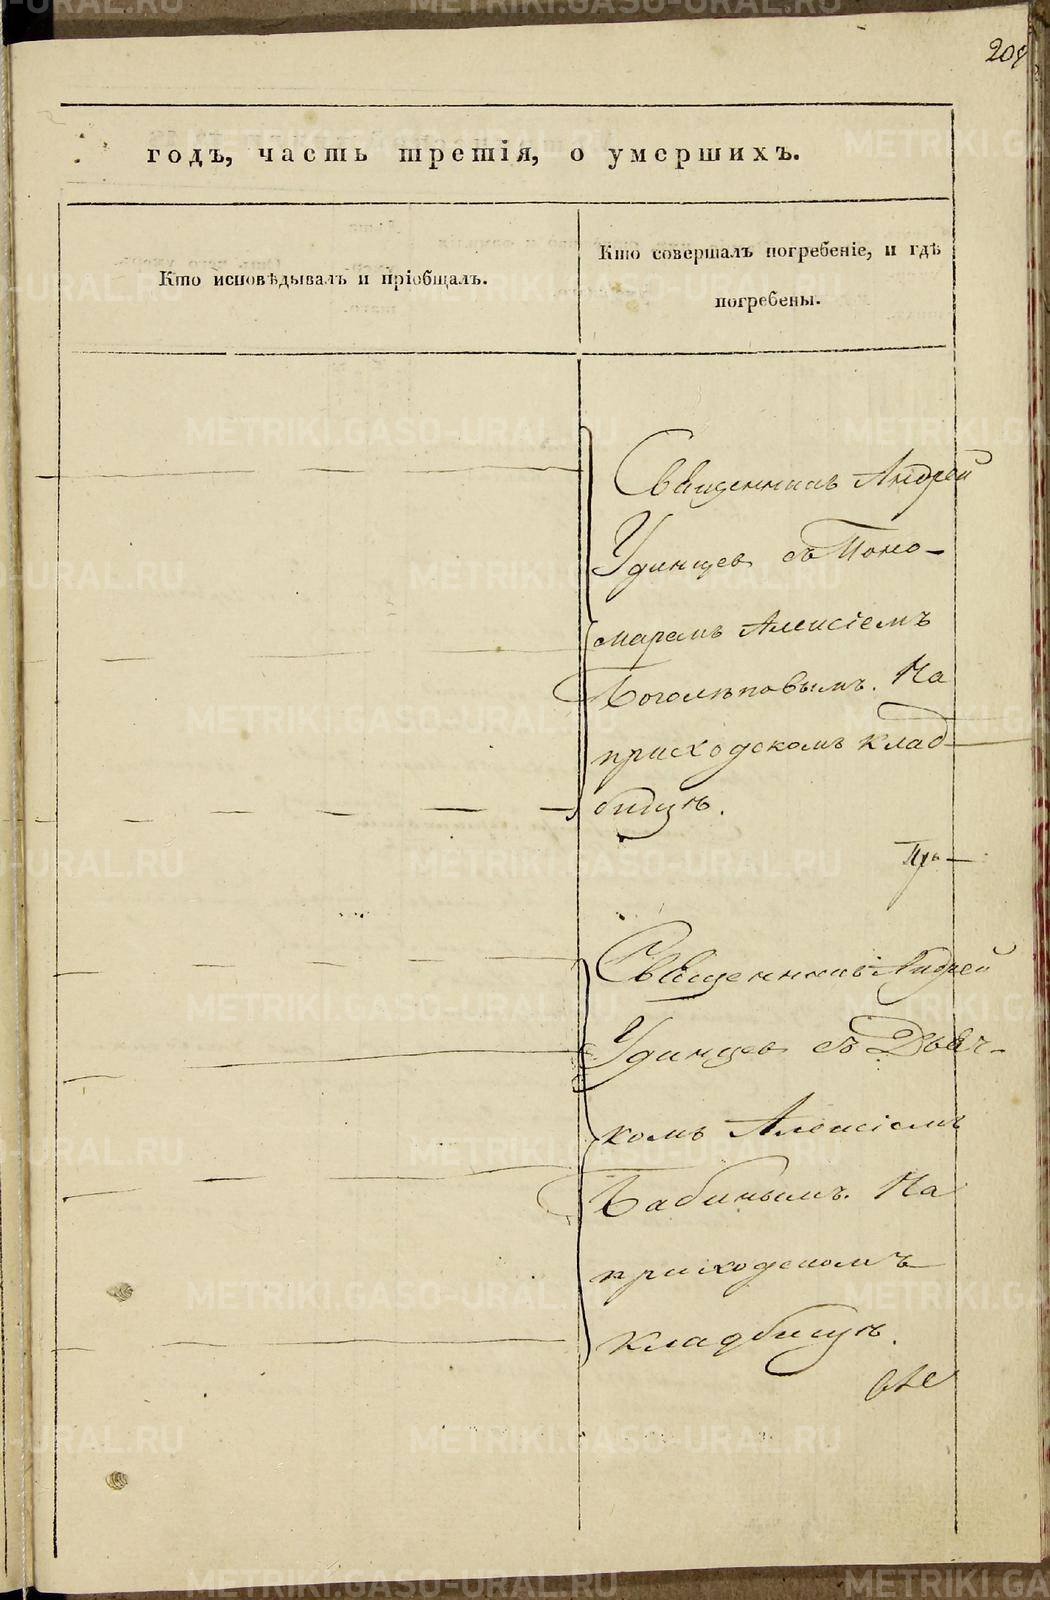 годъ, часть третія, о умершихъ.
Кто исповѣдывалъ и пріобщалъ.
Кто совершалъ погребеніе, и гдѣ
погребены.
Священникъ Андрей
Удинцев съ Поно-
маремъ Алексіемъ
Боголѣповымъ. На
приходскомъ клад-
бищѣ.
Священникъ Андрей
Удинцев съ Дьяч-
комъ Алексіемъ
Бабинымъ. На
приходскомъ
кладбищѣ.
METRIKI.GASO-URAL.RU